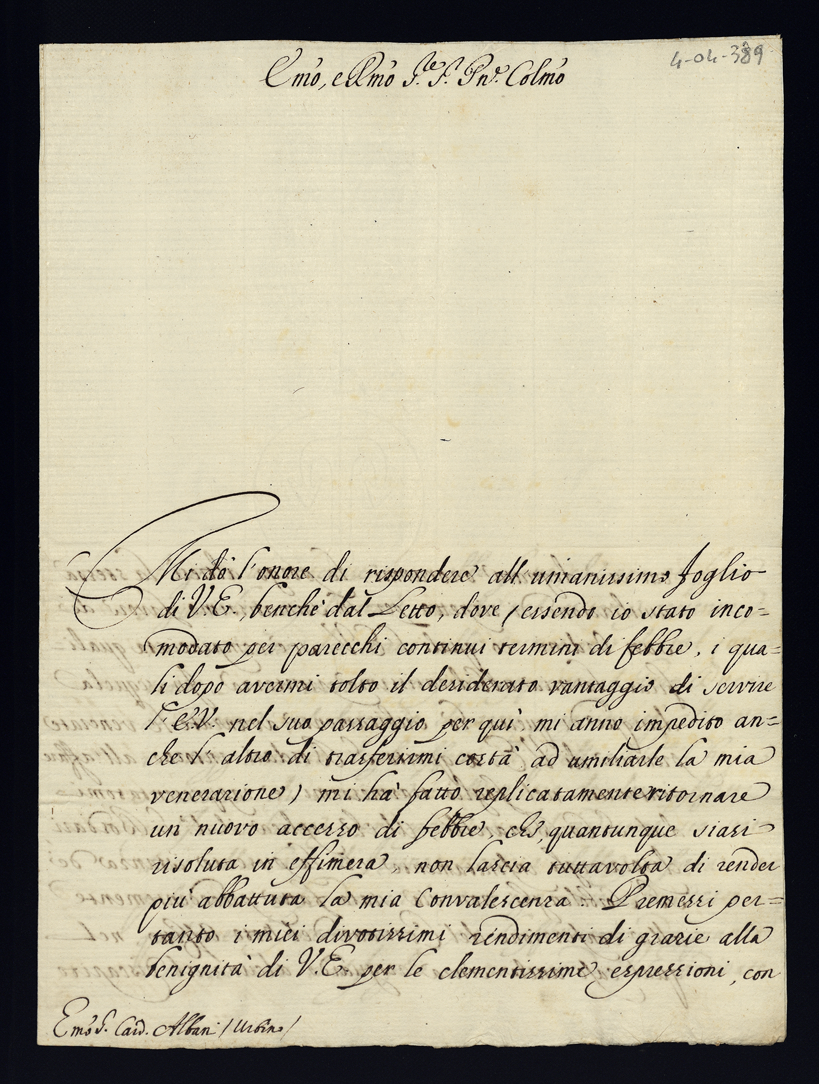 4-04-389
Emo, e Rmo Sre. Sr. Pne. Colmo
Mi dò l'onore di rispondere all'umanissimo foglio
di V.E., benchè dal Letto, dove (essendo io stato inco=
modato per parecchi continui termini di febbre, i qua=
li dopo avermi tolto il desiderato vantaggio di servire
l'E.V. nel suo passaggio per quì, mi anno impedito an=
che l'altro di trasferirmi costà ad umiliarle la mia
venerazione) mi hà fatto replicatamente ritornare
un nuovo accesso di febbre che, quantunque siasi
risoluta in effimera, non lascia tuttavolta di render
più abbattuta la mia Convalescenza. Premessi per=
tanto i miei divotissimi rendimenti di grazie alla
benignità di V.E. per le clementissime espressioni, con
Emo Sr. Card. Albani / Urbino /